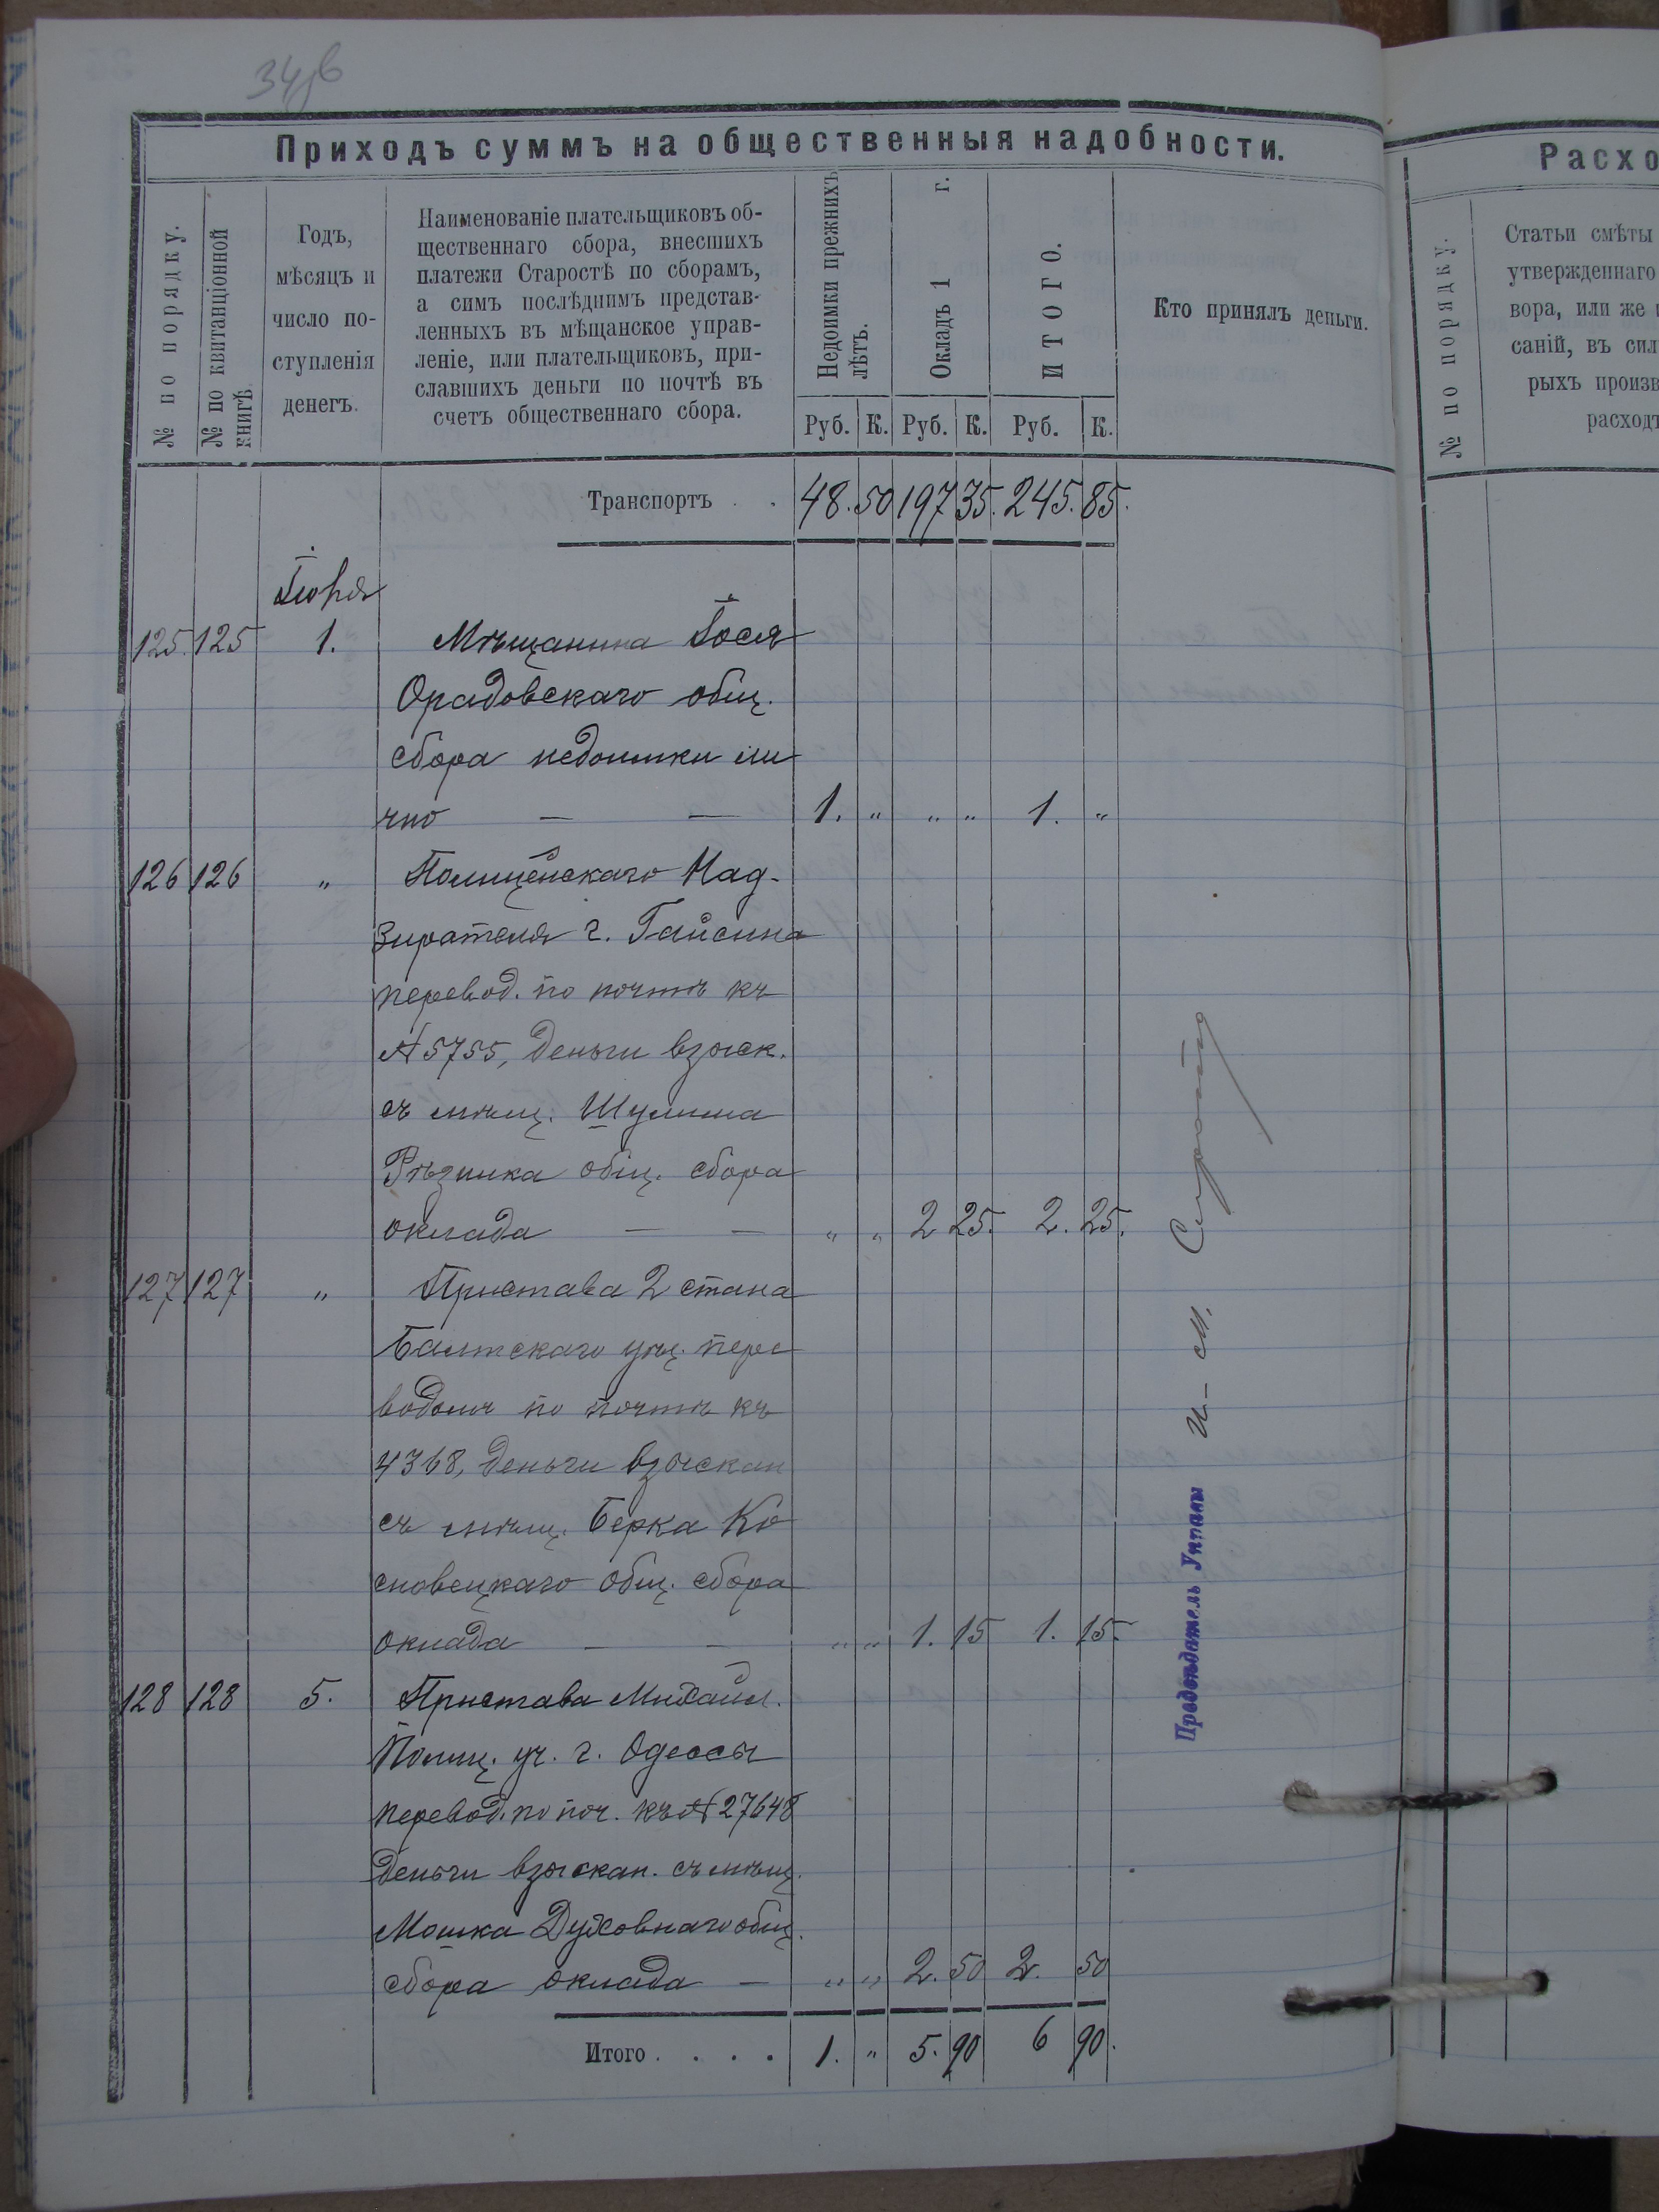 34об
Приходъ суммъ на общественныя надобности.
№ по порядку.
№ по квитанціонной
книгѣ.
Годъ,
мѣсяцъ и
число по-
ступленія
денегъ.
Наименованіе плательщиковъ об-
щественнаго сбора, внесшихъ
платежи Старостѣ по сборамъ,
а симъ послѣднимъ представ-
ленныхъ въ мѣщанское управ-
леніе, или плательщиковъ, при-
славшихъ деньги по почтѣ въ
счетъ общественнаго сбора.
Недоимки прежнихъ
лѣтъ.
Окладъ 1 г.
ИТОГО.
Кто принялъ деньги.
Руб. К. Руб. К. Руб. К.
Транспортъ . . 48. 50 197 35. 245. 85.
125. 125 1. Мѣщанина Іося
Орадовскаго общ.
сбора недоимки ли
чно — — 1. „ „ „ 1. „
126 126 „ Полицейскаго Над-
зирателя г. Гайсина
перевод. по почтѣ къ
№ 5755, деньги взыск.
съ мѣщ. Шулима
Рѣзника общ. сбора
оклада — — „ „ 2 25. 2. 25.
127 127 „ Пристава 2 стана
Балтскаго уѣз. пере
водомъ по почтѣ къ
4368, деньги взыскан
съ мѣщ. Берка Ко
сновецкаго общ. сбора
оклада — — „ „ 1. 15 1. 15.
128 128 5. Пристава Михайл.
Полиц. уч. г. Одессы
перевод. по поч. къ № 27648
деньги взыскан. съ мѣщ.
Мошка Духовнаго общ.
сбора оклада — „ „ 2. 50 2. 50
Итого . . . . 1. „ 5. 90 6 90.
Предсѣдатель Управы И. М.
Расхо
№ по порядку.
Статьи смѣты
утвержденнаго
вора, или же
саній, въ сил
рыхъ произв
расходъ